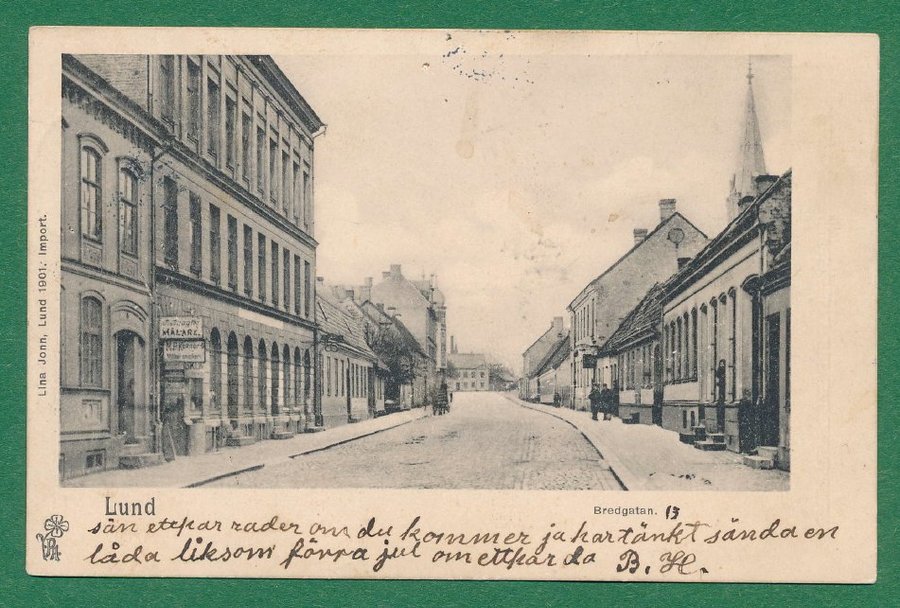 MÅLARE
Lina Jonn, Lund 1901; Import.
Lund
Bredgatan. 13
sän ettpar rader om du kommer ja har tänkt sända en
låda liksom förra jul om ettpar da B. H.